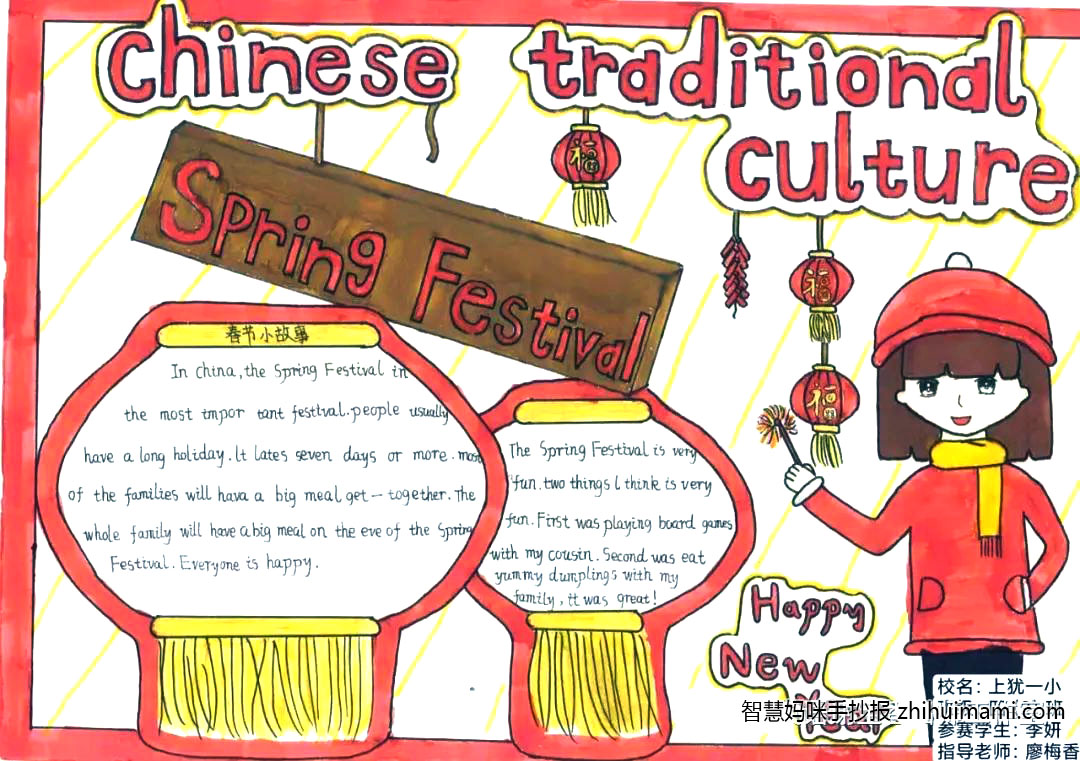 chinese traditional
culture
Spring Festival
福
福
福
春节小故事
In china, the Spring Festival in
the most impor tant festival.people usually
have a long holiday. It lates seven days or more. most
of the families will hava a big meal get—together. The
whole family will have a big meal on the eve of the Spring
Festival. Everyone is happy.
The Spring Festival is very
fun. two things I think is very
fun. First was playing board games
with my cousin. Second was eat
yummy dumplings with my
family, it was great!
Happy
New
Year
校名：上犹一小
智慧妈咪手抄报 zhihuimami.com
参赛学生：李妍
指导老师：廖梅香